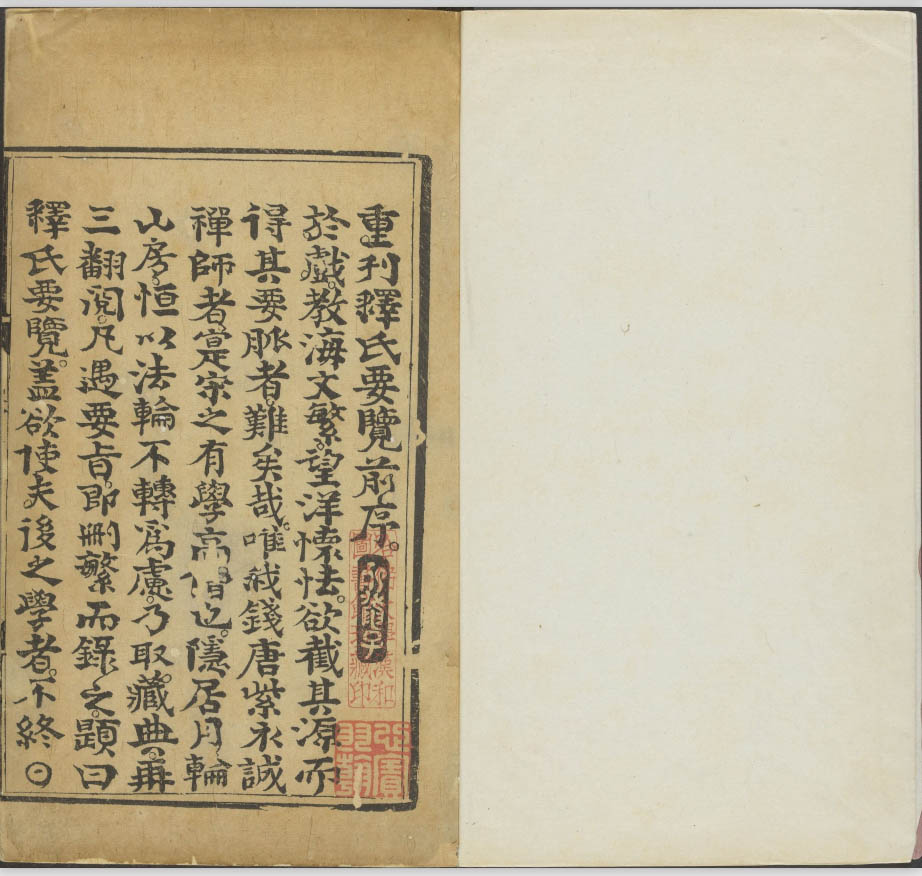 重刊釋氏要覽前序。
於戲。教海文繁。望洋懷怯。欲截其源而
得其要脈者。難矣哉。唯我錢唐紫衣誠
禪師者。寔宗之有學高僧也。隱居月輪
山房。恒以法輪不轉爲慮。乃取藏典。再
三翻閱。凡遇要旨。即刪繁而錄之。題曰
釋氏要覽。蓋欲使夫後之學者。不終日